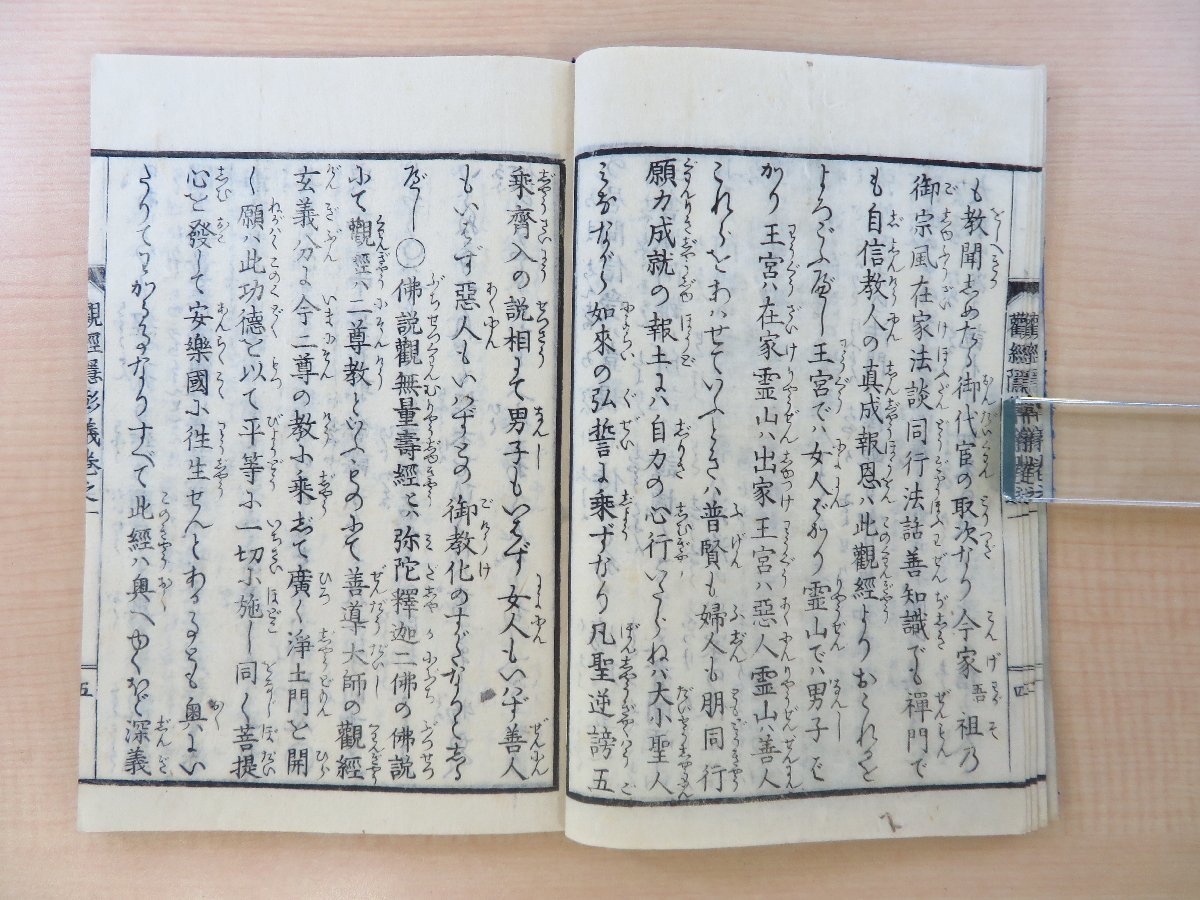 も教聞しめたら御代官の取次なり今家吾祖乃
御宗風在家法談同行法話善知識でも禪門で
も自信教人の真成報恩ハ此觀經よりおこれるを
よろこぶべし王宮でハ女人ばかり霊山でハ男子ば
かり王宮ハ在家霊山ハ出家王宮ハ惡人霊山ハ善人
これらをあハせていふときハ普賢も婦人も朋同行
願力成就の報土にハ自力の心行いたらねバ大小聖人
みなながら如來の弘誓に乗ずなり凡聖逆謗五
乘齊入の説相にて男子もいはず女人もいはず善人
もいはず惡人もいはずこの御教化のすがたなりしる
べし○佛説觀無量壽經とハ弥陀釋迦二佛の佛説
にて觀經ハ二尊教といふものにて善導大師の觀經
玄義分に今二尊の教に乘じて廣く淨土門を開
く願ハ此功德を以て平等に一切に施し同く菩提
心を發して安樂國に徃生せんとあるるども奥にい
たりてわかるるなりすべて此經ハ奥へゆくほど深義
觀經隱彰義卷之一
五
四